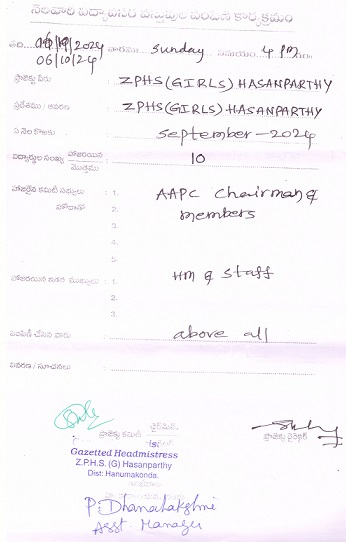 నెలవారీ విద్యావసర వస్తువుల పంపిణీ కార్యక్రమం
తేది 06/10/2024 వారము Sunday సమయం 4 PM
06/10/24
ప్రాజెక్టు పేరు : ZPHS (GIRLS) HASANPARTHY
ప్రదేశము / ఆవరణ : ZPHS (GIRLS) HASANPARTHY
ఏ నెల కొరకు : September-2024
విద్యార్థుల సంఖ్య హాజరయిన 10
మొత్తము
హాజరైన కమిటీ సభ్యులు : 1. AAPC Chairman &
2. members
3.
4.
5.
హాజరయిన ఇతర ముఖ్యులు : 1. HM & Staff
2.
3.
పంపిణీ చేసిన వారు : above all
వివరణ / సూచనలు :
ప్రాజెక్టు కమిటీ చైర్మన్
ప్రాజెక్టు డైరెక్టర్
Gazetted Headmistress
Z.P.H.S. (G) Hasanparthy
Dist: Hanumakonda.
P. Dhanalakshmi
Asst. Manager